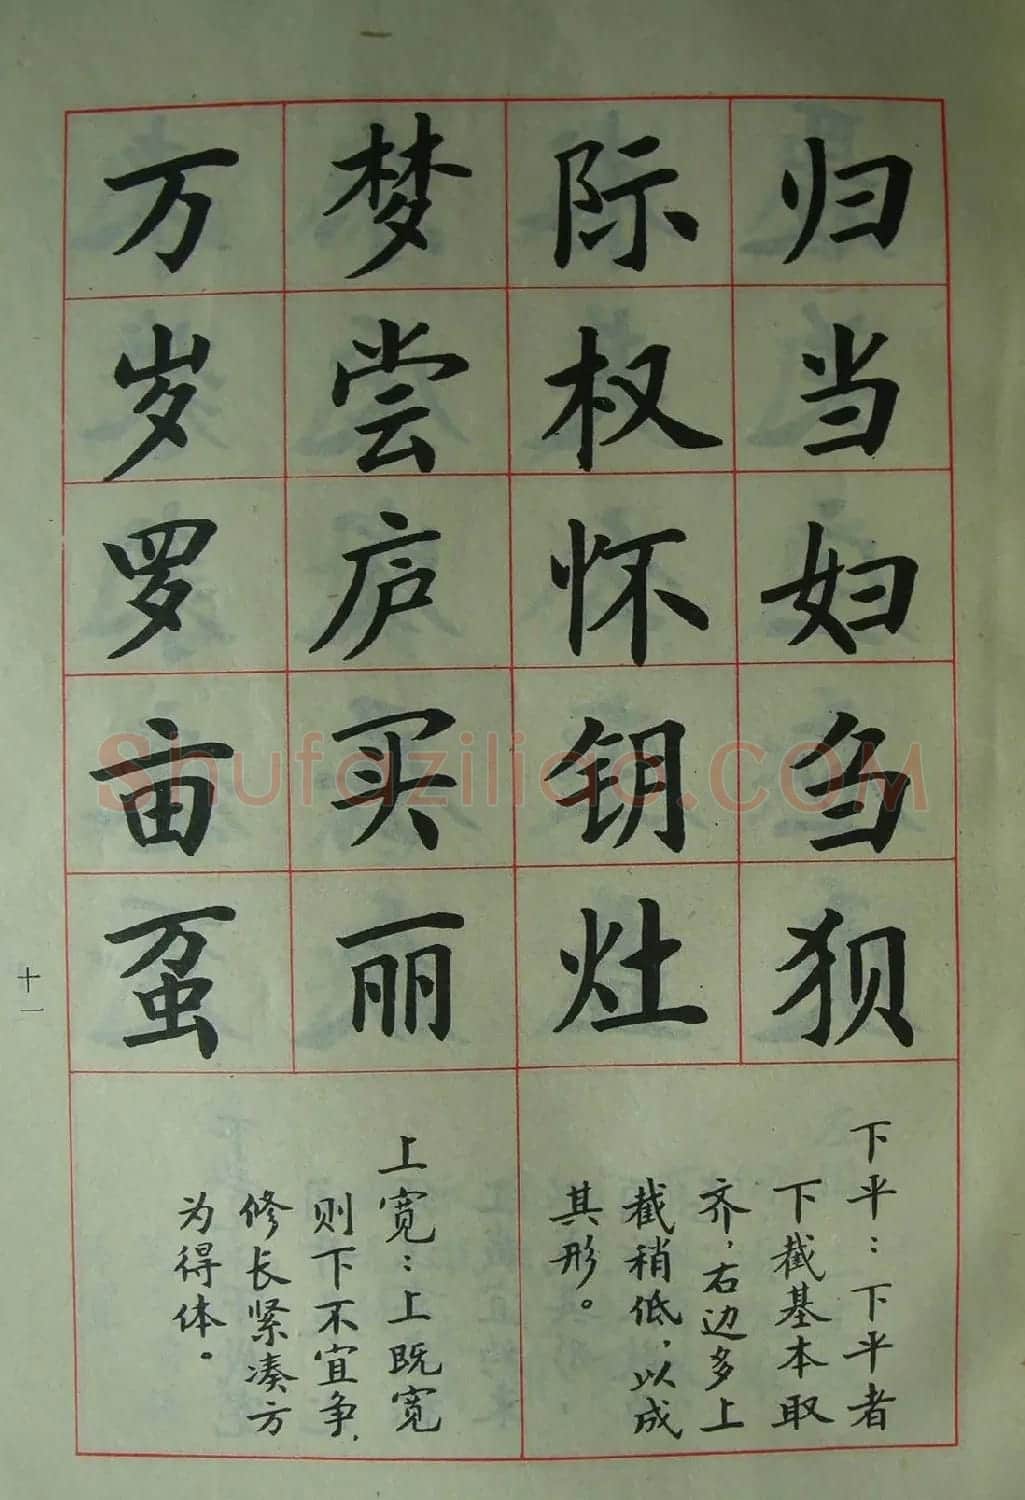 归当妇刍狈
际权怀钥灶
下平：下平者
下截基本取
齐，右边多上
截稍低，以成
其形。
梦尝庐买丽
万岁罗亩虿
上宽：上既宽
则下不宜争，
修长紧凑方
为得体。
十一
Shufaziliao.COM